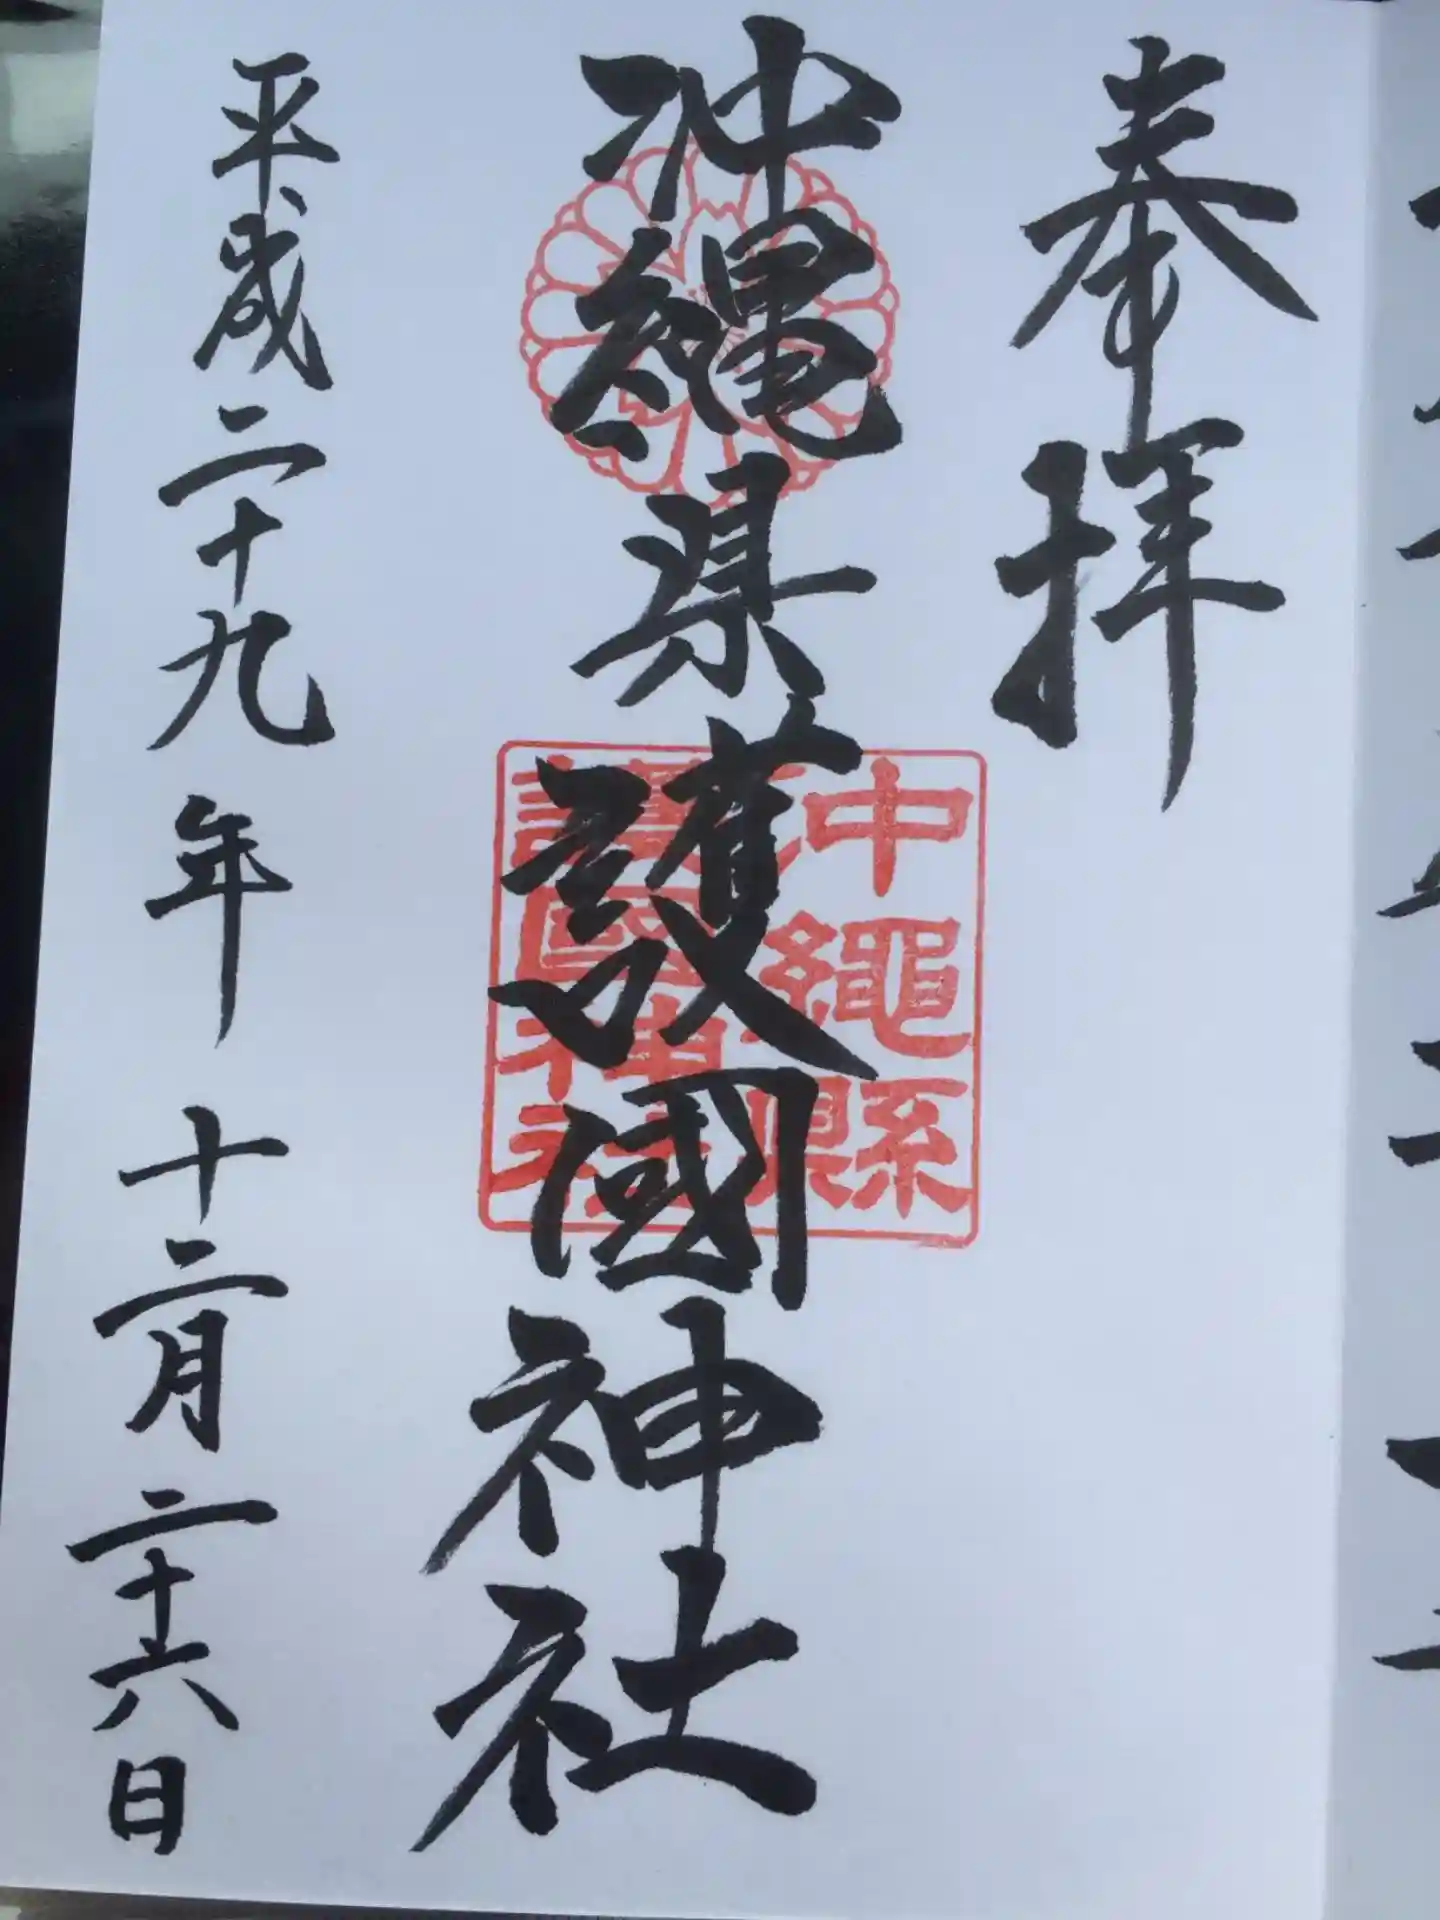 奉拝
沖縄県護國神社
沖繩縣
護國神社
平成二十九年十二月二十六日